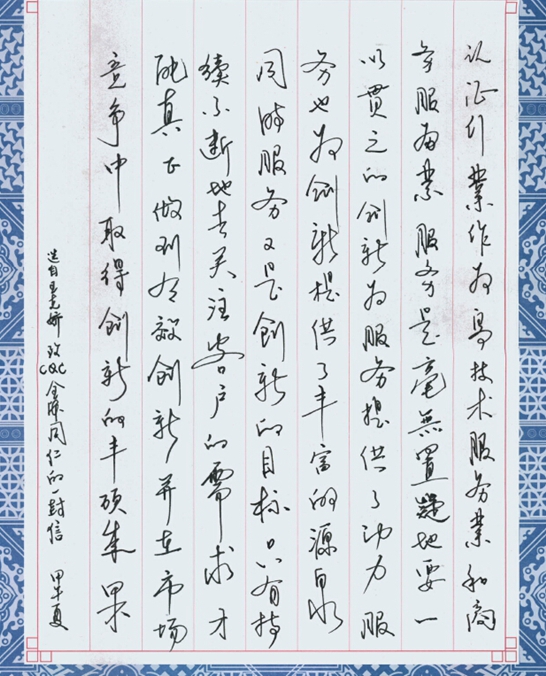 认证行業作为高技术服务業和商
务服务業 服务是毫無置疑地要一
以贯之的创新为服务提供了动力 服
务也为创新提供了丰富的源泉
同時服务又是创新的目标 只有持
续不断地去关注客户的需求 才
能真正做到有效创新 并在市场
竞争中取得创新的丰硕成果
选自王克娇致CQC全体同仁的一封信 甲午夏